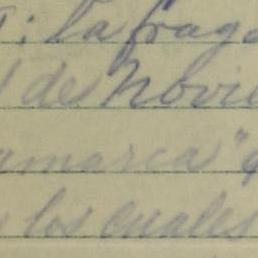 : la fraga
de Novie
amarca"
los cuales